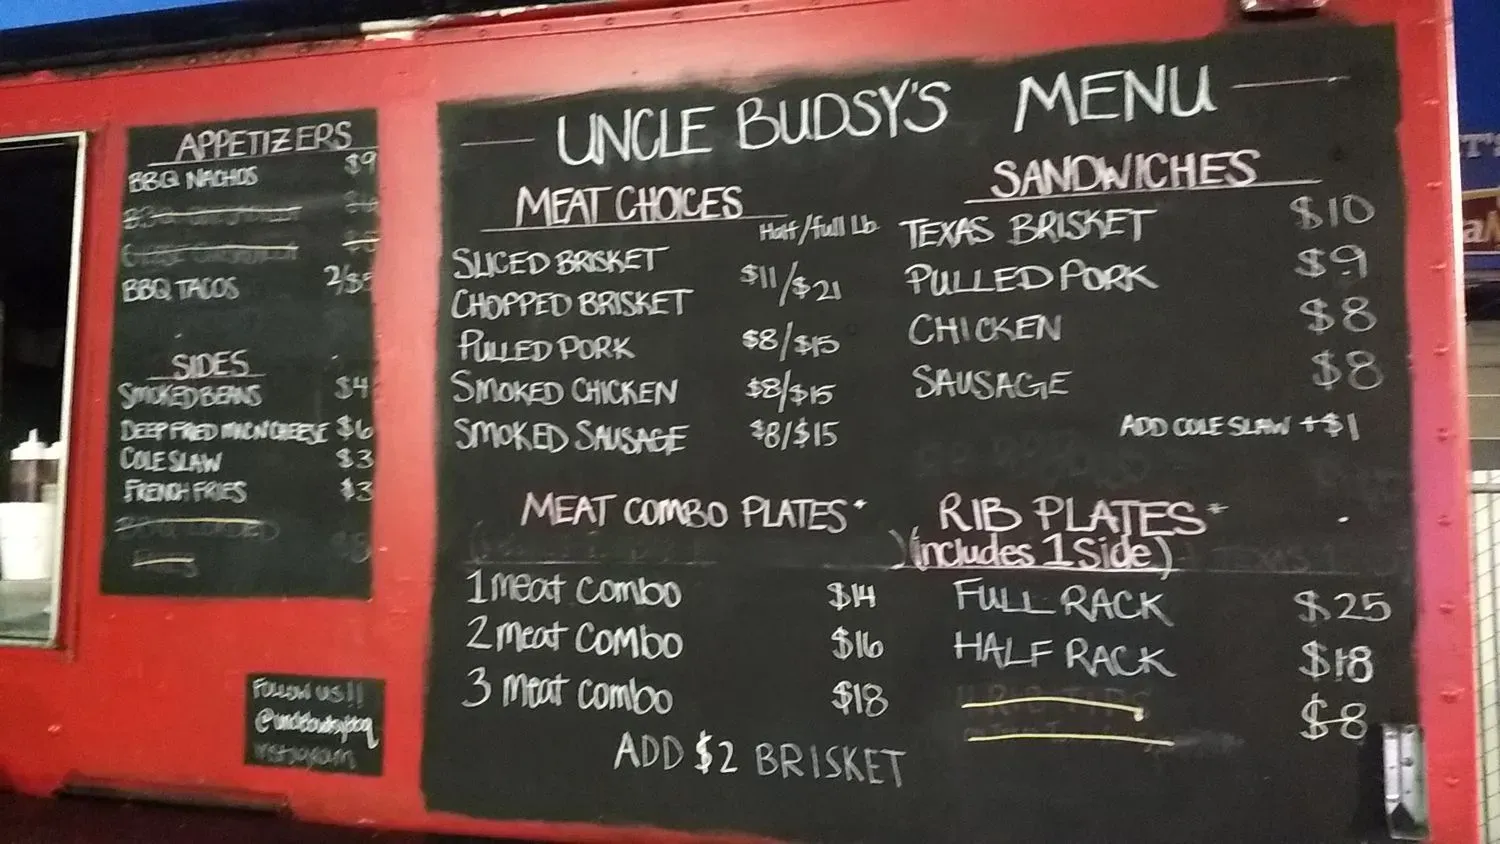 APPETIZERS
BBQ NACHOS $9
BBQ TACOS 2/$5
SIDES
SMOKED BEANS $4
DEEP FRIED MAC N' CHEESE $6
COLE SLAW $3
FRENCH FRIES $3
FOLLOW US!!
@unclebudsybbq
instagram
UNCLE BUDSY'S MENU
MEAT CHOICES
Half/full Lb.
SLICED BRISKET
$11/$21
CHOPPED BRISKET
PULLED PORK $8/$15
SMOKED CHICKEN $8/$15
SMOKED SAUSAGE $8/$15
SANDWICHES
TEXAS BRISKET $10
PULLED PORK $9
CHICKEN $8
SAUSAGE $8
ADD COLE SLAW +$1
MEAT COMBO PLATES*
1 meat combo $14
2 meat combo $16
3 meat combo $18
ADD $2 BRISKET
RIB PLATES*
(includes 1 Side)
FULL RACK $25
HALF RACK $18
RIB TIPS $8